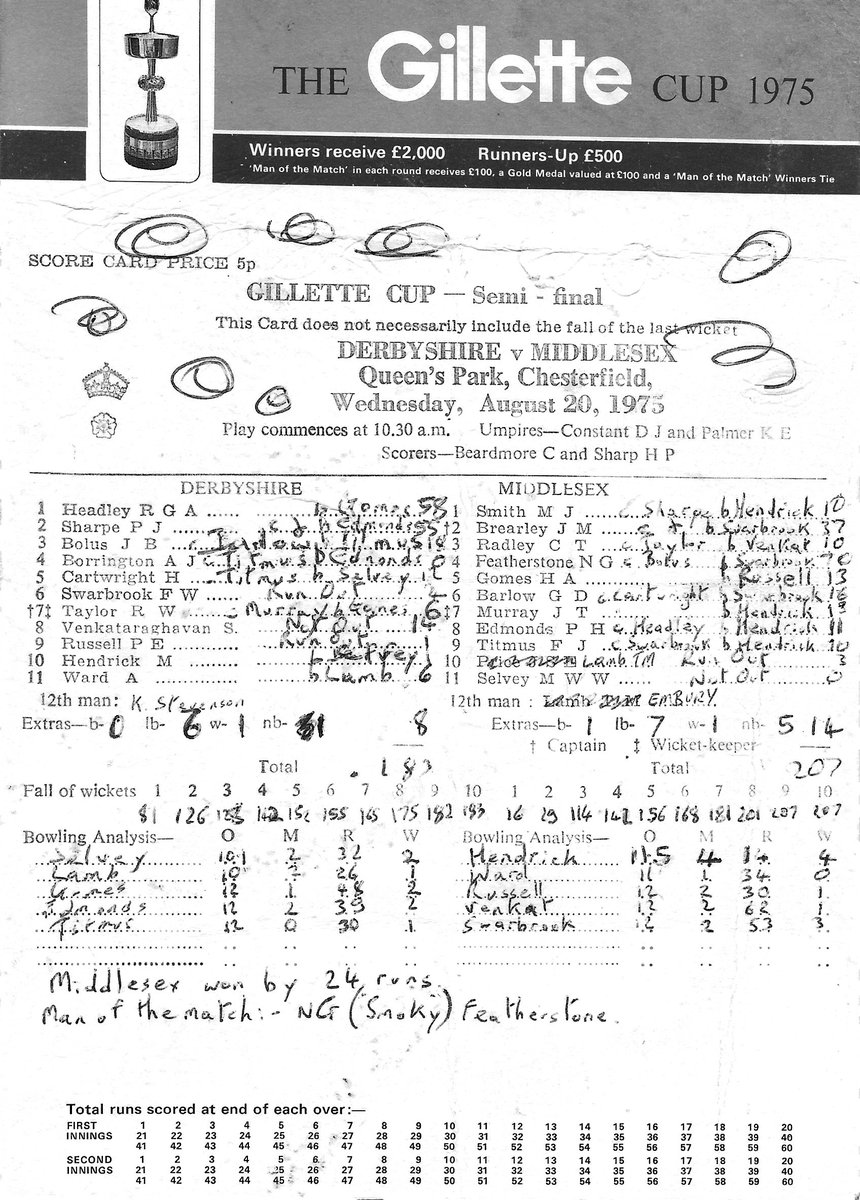 THE Gillette CUP 1975
Winners receive £2,000 Runners-Up £500
'Man of the Match' in each round receives £100, a Gold Medal valued at £100 and a 'Man of the Match' Winners Tie
SCORE CARD PRICE 5p
GILLETTE CUP — Semi - final
This Card does not necessarily include the fall of the last wicket
DERBYSHIRE v MIDDLESEX
Queen's Park, Chesterfield,
Wednesday, August 20, 1975
Play commences at 10.30 a.m. Umpires—Constant D J and Palmer K E
Scorers—Beardmore C and Sharp H P
DERBYSHIRE
1 Headley R G A ..... b Gomes 58
2 Sharpe P J ..... b Edmonds 55
3 Bolus J B .. c Barlow b Titmus
4 Borrington A J c Titmus b Edmonds 0
5 Cartwright H .. c Titmus b Selvey
6 Swarbrook F W ..... Run Out
†7‡ Taylor R W ... c Murray b Gomes 6
8 Venkataraghavan S. Not Out 14
9 Russell P E ...... Run Out 1
10 Hendrick M ...... b Selvey 1
11 Ward A ...... b Lamb 6
12th man: K. Stevenson
Extras—b- 0 lb- 6 w- 1 nb- 1 8
Total 183
Fall of wickets 1 2 3 4 5 6 7 8 9 10
81 126 142 152 155 165 175 182 183
Bowling Analysis— O M R W
Selvey 10.1 2 32 2
Lamb 10 2 26 1
Gomes 12 1 48 2
Edmonds 12 2 39 2
Titmus 12 0 30 1
MIDDLESEX
1 Smith M J .... c Sharpe b Hendrick 10
†2 Brearley J M .... c & b Swarbrook 37
3 Radley C T ... c Taylor b Venkat 10
4 Featherstone N G c Bolus b Swarbrook 70
5 Gomes H A ..... b Russell 13
6 Barlow G D c Cartwright b Swarbrook 16
‡7 Murray J T ..... b Hendrick
8 Edmonds P H c Headley b Hendrick 11
9 Titmus F J c Swarbrook b Hendrick 10
10 Lamb TM Run Out 3
11 Selvey M W W ..... Not Out 0
12th man : EMBURY.
Extras—b- 1 lb- 7 w- 1 nb- 5 14
† Captain ‡ Wicket-keeper
Total 207
1 2 3 4 5 6 7 8 9 10
16 29 114 142 156 168 181 201 207 207
Bowling Analysis— O M R W
Hendrick 11.5 4 14 4
Ward 11 1 34 0
Russell 12 2 30 1
Venkat 12 2 62 1
Swarbrook 12 2 53 3
Middlesex won by 24 runs.
Man of the match:- NG (Smoky) Featherstone.
Total runs scored at end of each over:—
FIRST 1 2 3 4 5 6 7 8 9 10 11 12 13 14 15 16 17 18 19 20
INNINGS 21 22 23 24 25 26 27 28 29 30 31 32 33 34 35 36 37 38 39 40
41 42 43 44 45 46 47 48 49 50 51 52 53 54 55 56 57 58 59 60
SECOND 1 2 3 4 5 6 7 8 9 10 11 12 13 14 15 16 17 18 19 20
INNINGS 21 22 23 24 25 26 27 28 29 30 31 32 33 34 35 36 37 38 39 40
41 42 43 44 45 46 47 48 49 50 51 52 53 54 55 56 57 58 59 60